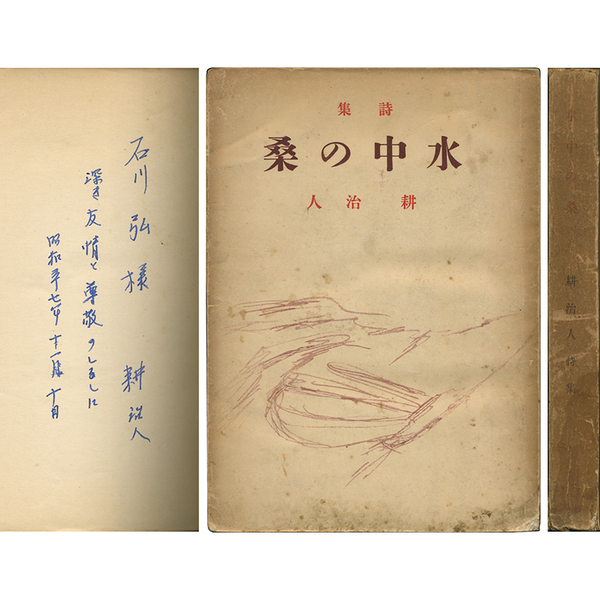 石川弘様 耕治人
深き友情と尊敬のしるしに
昭和 七年 十一月 十日
詩集
水中の桑
耕治人
水中の桑 耕治人詩集